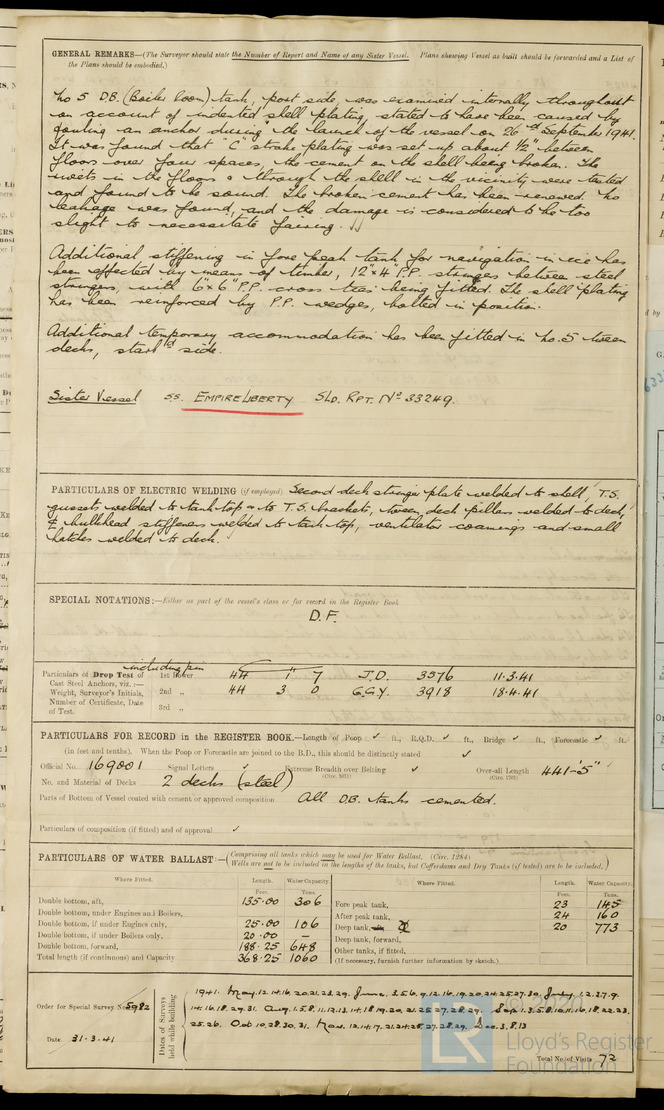 GENERAL REMARKS—(The Surveyor should state the Number of Report and Name of any Sister Vessel. Plans shewing Vessel as built should be forwarded and a List of
the Plans should be embodied.)
No 5 D.B. (Boiler Room) tank, port side, was examined internally throughout
on account of indented shell plating, stated to have been caused by
fouling an anchor during the launch of the vessel on 26th September 1941.
It was found that "C" strake plating was set up about ½" between
floors over four spaces, the cement on the shell being broken. The
rivets in the floors & through the shell in the vicinity were tested
and found to be sound. The broken cement has been renewed. No
leakage was found, and the damage is considered to be too
slight to necessitate fairing.
Additional stiffening in fore peak tank for navigation in ice has
been effected by means of timber, 12"x4" P.P. stringers between steel
stringers, with 6"x6" P.P. cross ties being fitted. The shell plating
has been reinforced by P.P. wedges, bolted in position.
Additional temporary accommodation has been fitted in No. 5 tween
decks, starbd side.
Sister Vessel SS. EMPIRE LIBERTY SLD. RPT. No 33249.
PARTICULARS OF ELECTRIC WELDING (if employed) Second deck stringer plate welded to shell, T.S.
gussets welded to tank top & to T.S. brackets, tween deck pillars welded to deck,
& bulkhead stiffeners welded to tank top, ventilator coamings and small
hatches welded to deck.
SPECIAL NOTATIONS:—Either as part of the vessel's class or for record in the Register Book
D.F.
including pin
Particulars of Drop Test of 1st Bower 44 1 7 J.D. 3576 11.3.41
Cast Steel Anchors, viz.:—
Weight, Surveyor's Initials, 2nd „ 44 3 0 G.G.Y. 3918 18.4.41
Number of Certificate, Date
of Test. 3rd „
PARTICULARS FOR RECORD in the REGISTER BOOK.—Length of Poop ✓ ft., R.Q.D. ✓ ft., Bridge ✓ ft., Forecastle ✓ ft.
(in feet and tenths). When the Poop or Forecastle are joined to the B.D., this should be distinctly stated ✓
Official No. 169001 Signal Letters ✓ Extreme Breadth over Belting ✓ Over-all Length 441'-5"
No. and Material of Decks 2 decks (steel)
Parts of Bottom of Vessel coated with cement or approved composition All D.B. tanks cemented.
Particulars of composition (if fitted) and of approval ✓
PARTICULARS OF WATER BALLAST:—(Comprising all tanks which may be used for Water Ballast. (Circ. 1284)
Wells are not to be included in the lengths of the tanks, but Cofferdams and Dry Tanks (if tested) are to be included.)
Where Fitted. Length. Water Capacity. Where Fitted. Length. Water Capacity.
Feet. Tons. Feet. Tons.
Double bottom, aft, 135.00 306 Fore peak tank, 23 145
Double bottom, under Engines and Boilers, After peak tank, 24 160
Double bottom, if under Engines only, 25.00 106 Deep tank, 20 773
Double bottom, if under Boilers only, 20.00 – Deep tank, forward,
Double bottom, forward, 188.25 648 Other tanks, if fitted,
Total length (if continuous) and Capacity 368.25 1060 (If necessary, furnish further information by sketch.)
Order for Special Survey No. 5982
Date 31.3.41
Dates of Surveys held while building
1941. May. 12.14.16.20.21.23.29. June. 3.5.6.9.12.16.19.20.24.25.27.30. July. 1.2.7.9.
14.16.18.29.31. Aug. 1.5.8.11.12.13.14.18.19.20.21.25.27.28.29. Sep. 1.3.5.8.10.11.16.18.22.23.
25.26. Oct. 10.28.30.31. Nov. 12.14.17.21.24.25.27.28.29. Dec. 3.8.13
Total No. of Visits 72
© 2020
LR
Lloyd's Register
Foundation